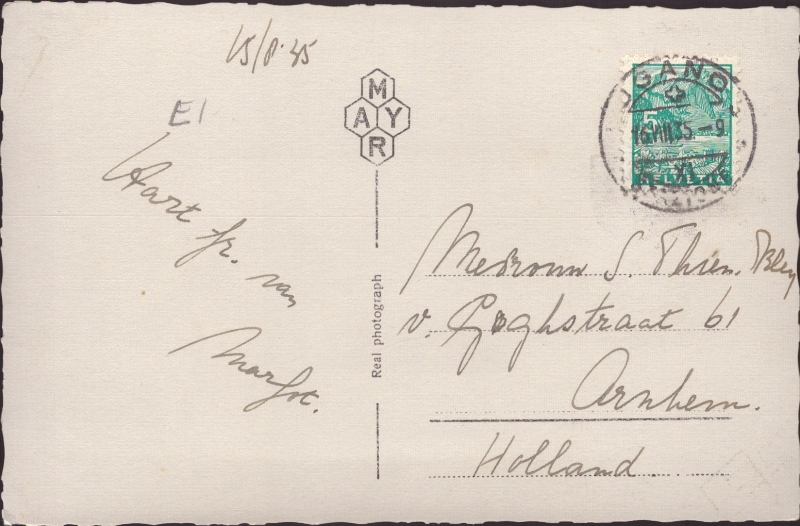 15/8.35
E1
Hart gr. van
Margot.
M
A Y
R
Real photograph
LUGANO
16.VIII.35.-9
5
HELVETIA
Mevrouw S. Thien. Bley
v. Goghstraat 61
Arnhem.
Holland.